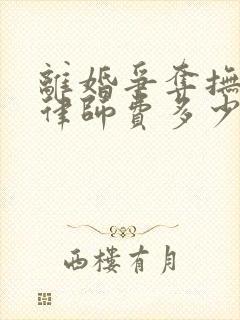 離婚爭奪撫
律師費多少
西樓有月